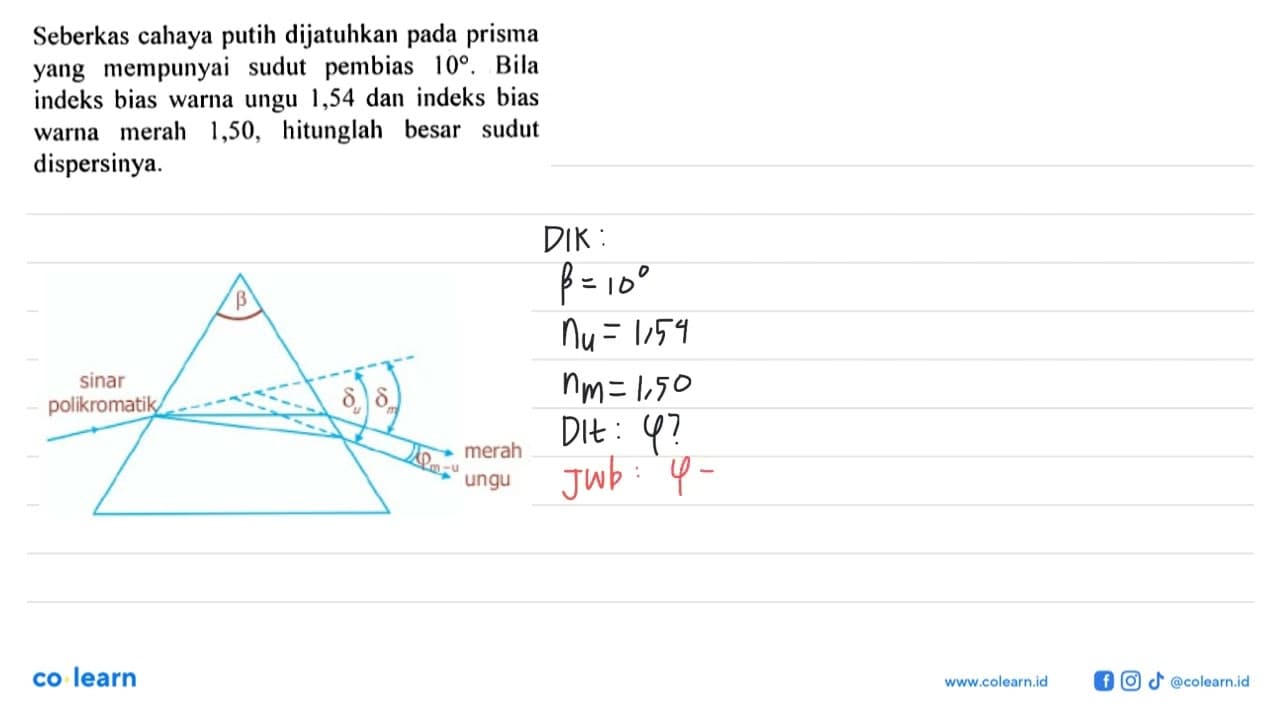 Seberkas cahaya putih dijatuhkan pada prisma
yang mempunyai sudut pembias 10°. Bila
indeks bias warna ungu 1,54 dan indeks bias
warna merah 1,50, hitunglah besar sudut
dispersinya.
DIK :
β = 10°
nu = 1,54
nm = 1,50
Dit : φ?
Jwb : φ -
β
sinar
polikromatik
δu δm
φm-u
merah
ungu
co learn
www.colearn.id
@colearn.id